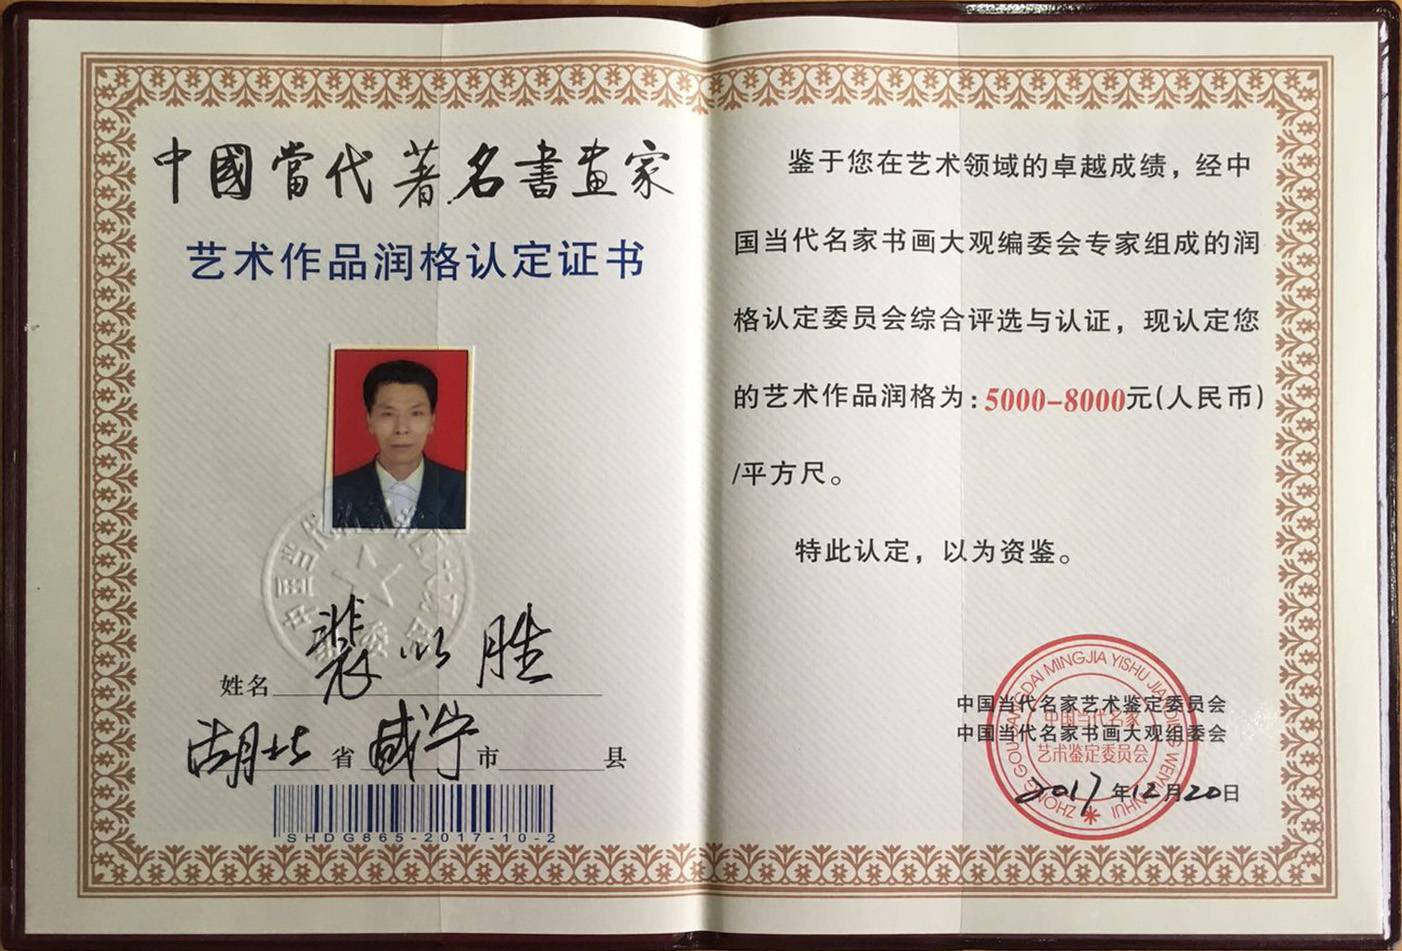 中國當代著名書画家
艺术作品润格认定证书
姓名 裴以胜
湖北省 咸宁市 县
SHDG865-2017-10-2
鉴于您在艺术领域的卓越成绩，经中
国当代名家书画大观编委会专家组成的润
格认定委员会综合评选与认证，现认定您
的艺术作品润格为：5000-8000元(人民币)
/平方尺。
特此认定，以为资鉴。
中国当代名家艺术鉴定委员会
中国当代名家书画大观组委会
2017年12月20日
中国当代名家
艺术鉴定委员会